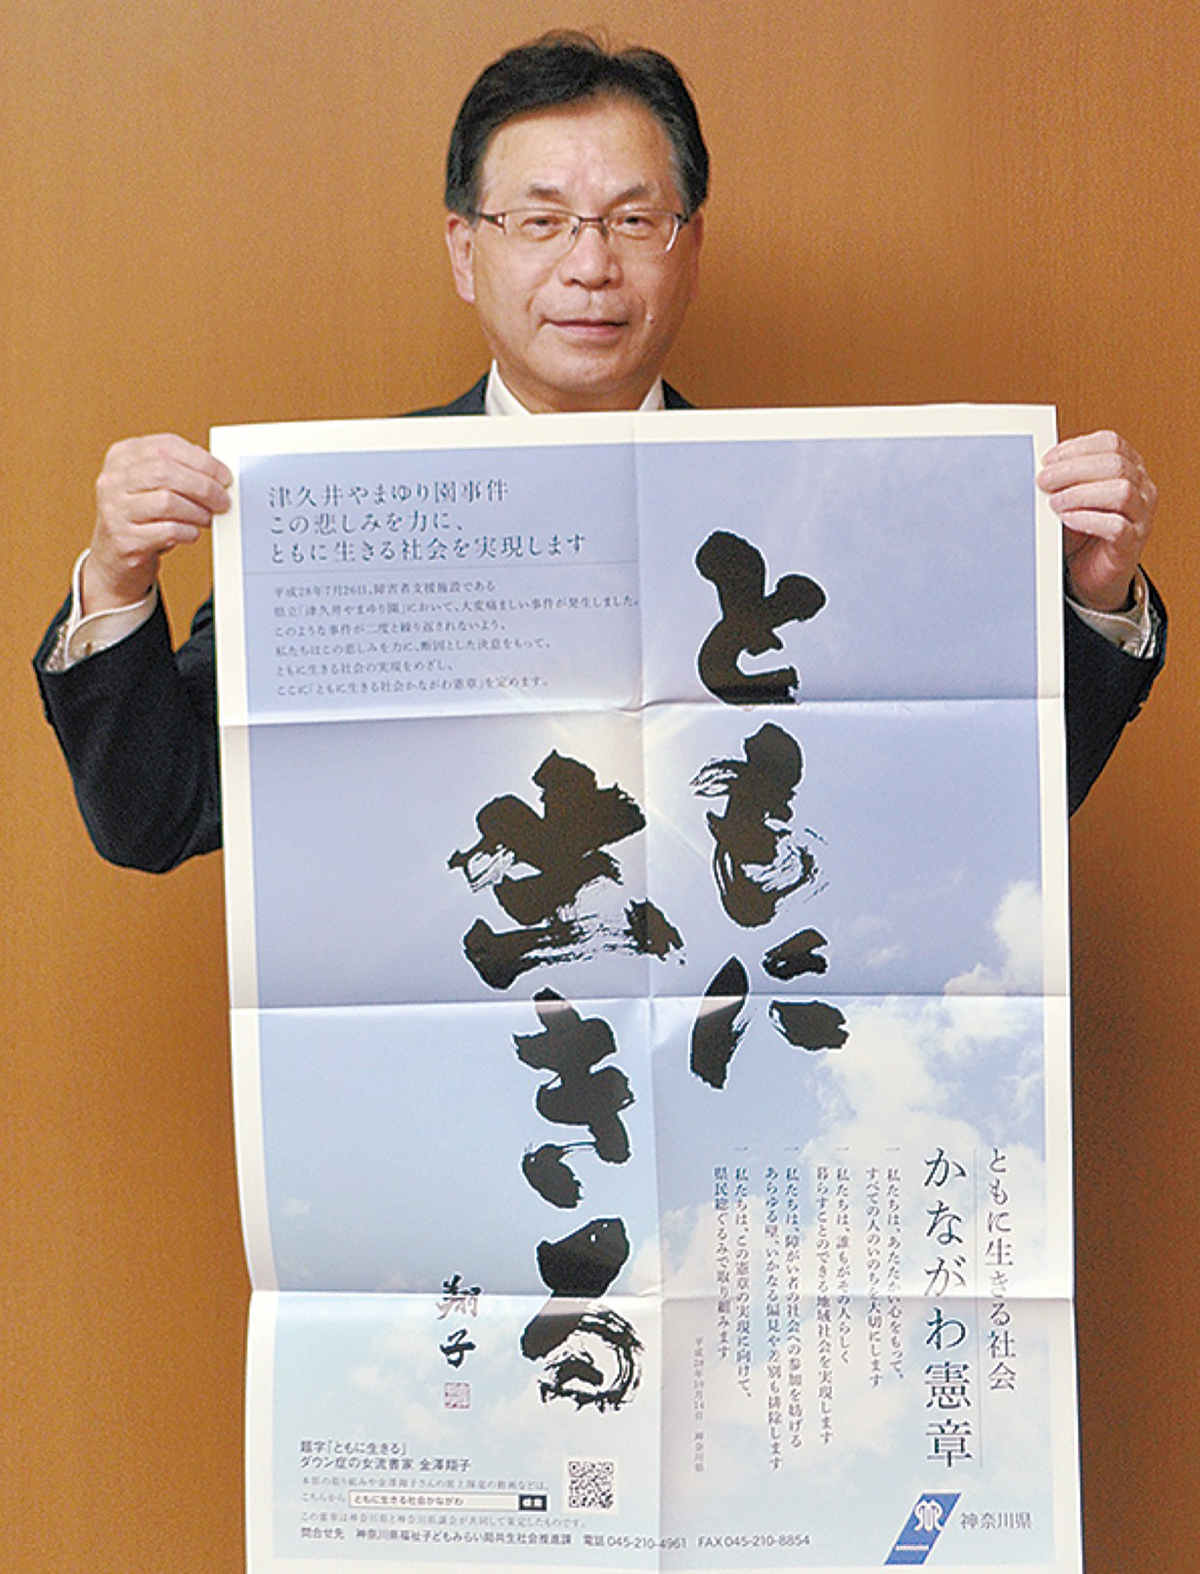 津久井やまゆり園事件
この悲しみを力に、
ともに生きる社会を実現します
平成28年7月26日、障害者支援施設である
県立「津久井やまゆり園」において、大変痛ましい事件が発生しました。
このような事件が二度と繰り返されないよう、
私たちはこの悲しみを力に、断固とした決意をもって、
ともに生きる社会の実現をめざし、
ここに「ともに生きる社会かながわ憲章」を定めます。
ともに
生きる
翔子
ともに生きる社会
かながわ憲章
一 私たちは、あたたかい心をもって、
すべての人のいのちを大切にします
一 私たちは、誰もがその人らしく
暮らすことのできる地域社会を実現します
一 私たちは、障がい者の社会への参加を妨げる
あらゆる壁、いかなる偏見や差別も排除します
一 私たちは、この憲章の実現に向けて、
県民総ぐるみで取り組みます
平成28年10月14日 神奈川県
題字「ともに生きる」
ダウン症の女流書家 金澤翔子
本県の取り組みや金澤翔子さんの席上揮毫の動画などは、
こちらから ともに生きる社会かながわ 検索
この憲章は神奈川県と神奈川県議会が共同して策定したものです。
問合せ先 神奈川県福祉子どもみらい局共生社会推進課 電話 045-210-4961 FAX 045-210-8854
神奈川県